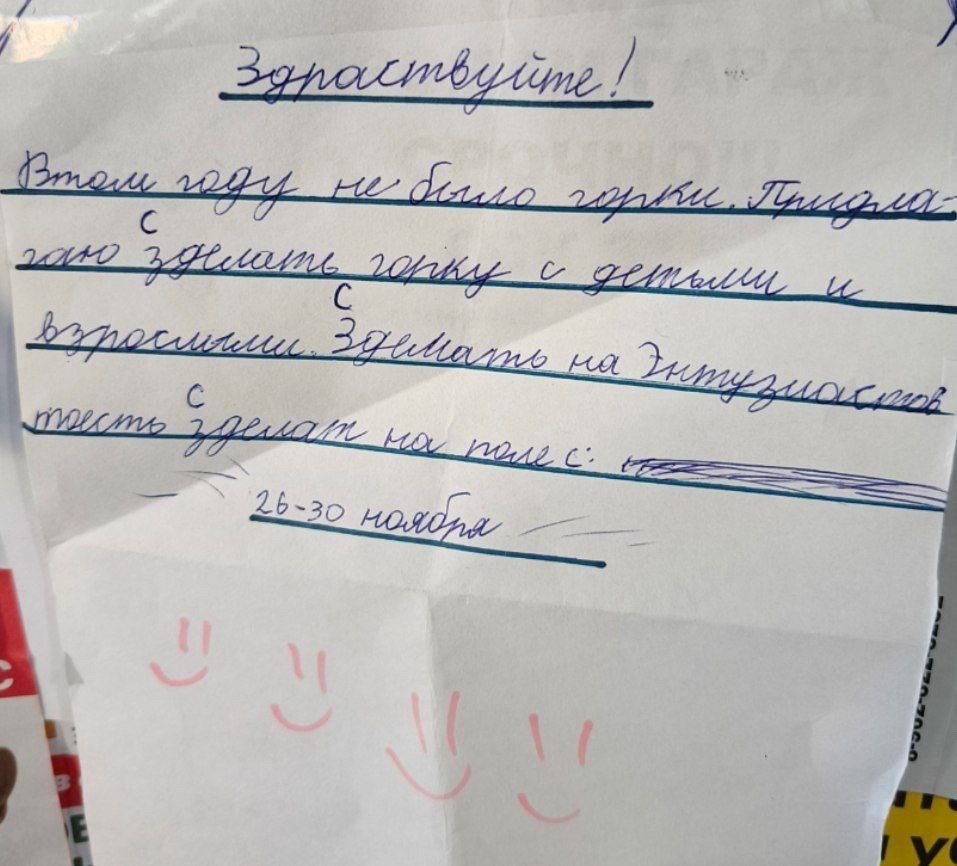 Здраствуйте!
Втом году не было горки. Придла-
гаю зделать горку с детьми и
С
взрослыми. Зделать на Энтузиастов
С
тоесть зделат на поле с:
С
26-30 ноября